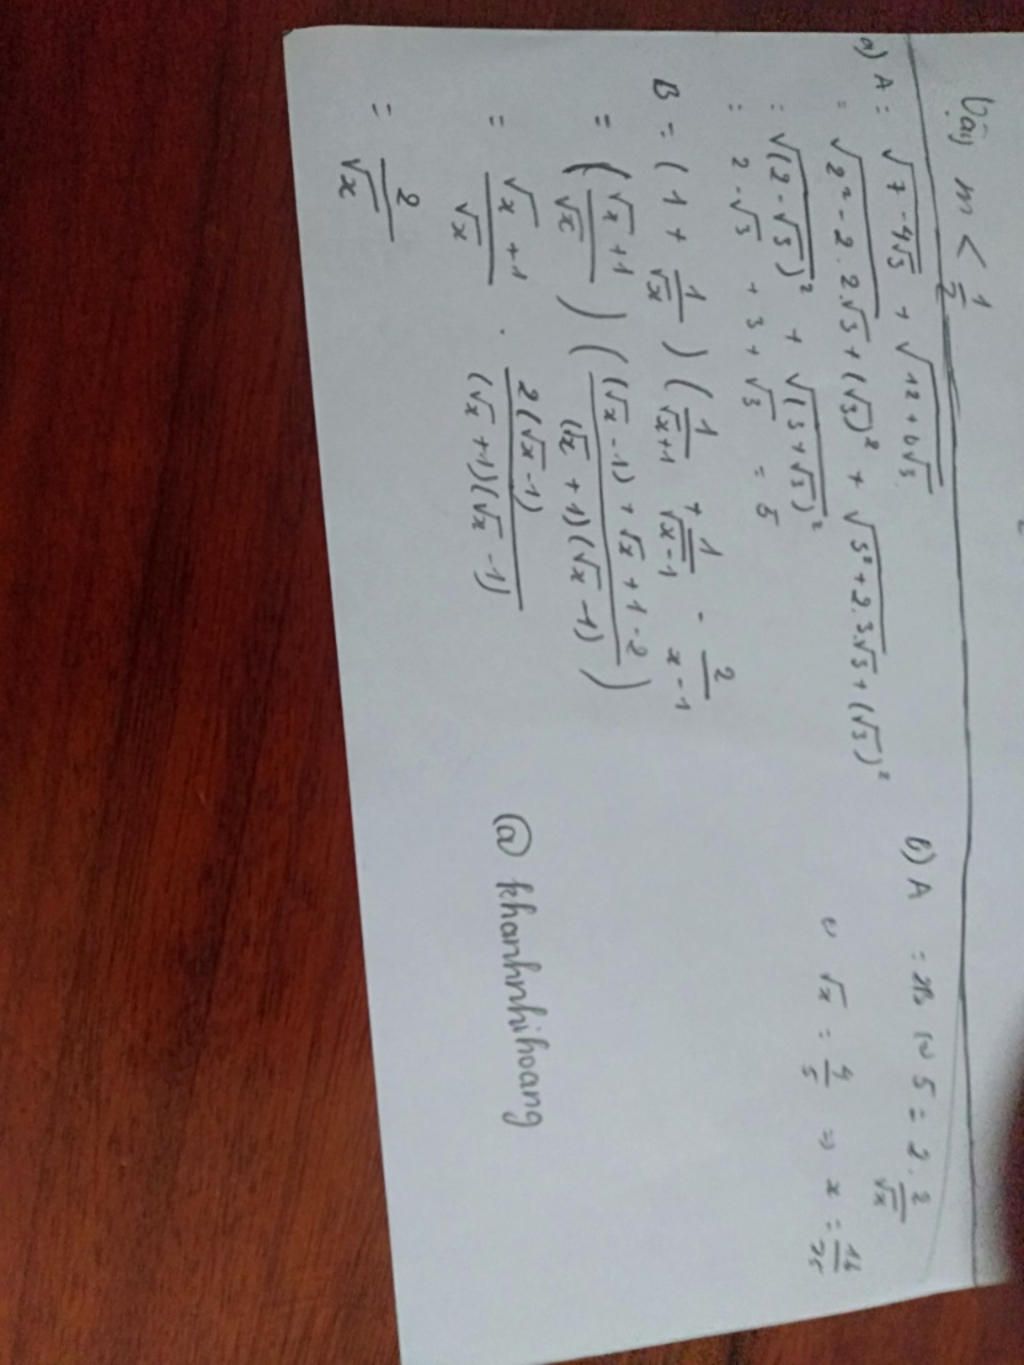 Vậy m < 1/2
a) A = √(7 - 4√3) + √(12 + 6√3)
= √(2² - 2.2.√3 + (√3)²) + √(3² + 2.3.√3 + (√3)²)
= √((2 - √3)²) + √((3 + √3)²)
= 2 - √3 + 3 + √3 = 5
B = (1 + 1/√x) (1/(√x+1) + 1/(√x-1) - 2/(x-1))
= ((√x+1)/√x) (((√x-1) + √x + 1 - 2)/((√x+1)(√x-1)))
= (√x+1)/√x . 2(√x-1)/((√x+1)(√x-1))
= 2/√x
b) A = 2B ⇔ 5 = 2. 2/√x
⇔ √x = 4/5 ⇒ x = 16/25
@ khanhnhihoang